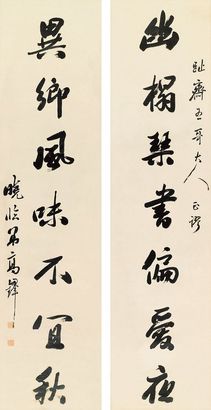 幽榻琴書偏愛夜
趾齋五哥大人 正謬
異鄉風味不宜秋
曉弟高鐸